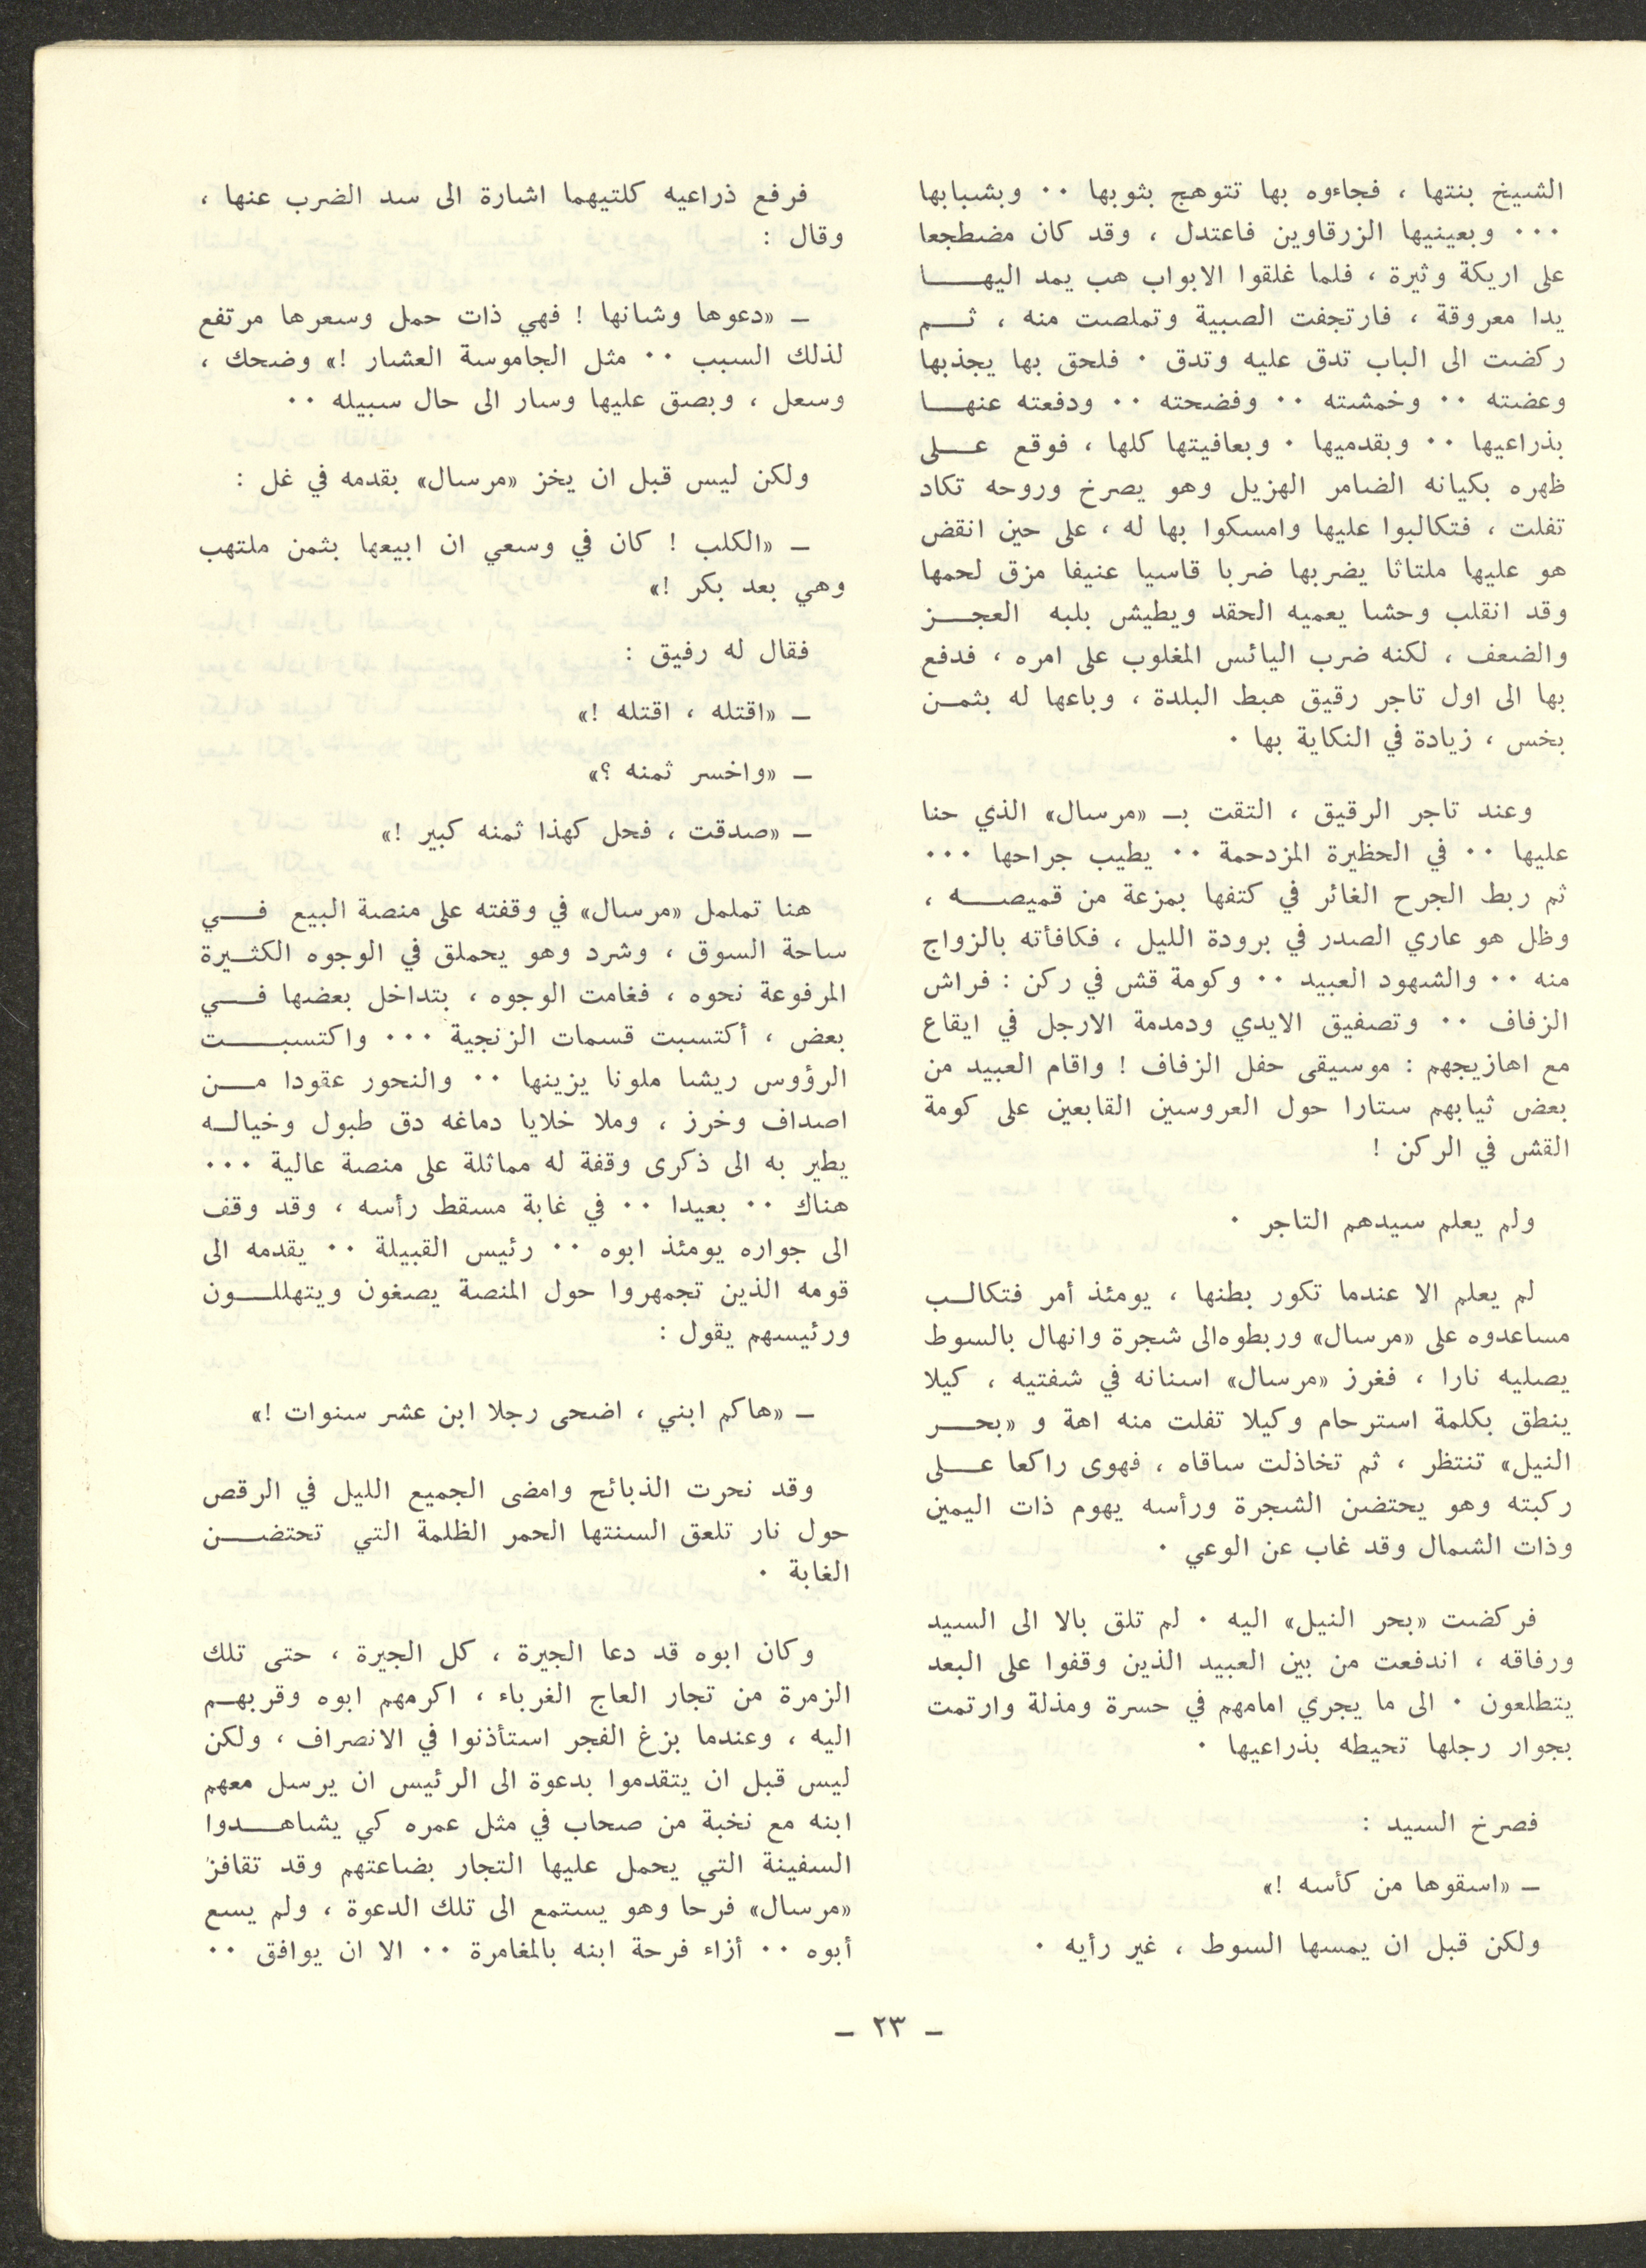 الشيخ بنتها ، فجاءوه بها تتوهج بثوبها ٠٠ وبشبابها
٠٠٠ وبعينيها الزرقاوين فاعتدل ، وقد كان مضطجعا
على اريكة وثيرة ، فلما غلقوا الابواب هب يمد اليهـــا
يدا معروقة ، فارتجفت الصبية وتملصت منه ، ثـــم
ركضت الى الباب تدق عليه وتدق ٠ فلحق بها يجذبها
وعضته ٠٠ وخمشته ٠٠ وفضحته ٠٠ ودفعته عنهـــا
بذراعيها ٠٠ وبقدميها ٠ وبعافيتها كلها ، فوقع عـــلى
ظهره بكيانه الضامر الهزيل وهو يصرخ وروحه تكاد
تفلت ، فتكالبوا عليها وامسكوا بها له ، على حين انقض
هو عليها ملتاثا يضربها ضربا قاسيا عنيفا مزق لحمها
وقد انقلب وحشا يعميه الحقد ويطيش بلبه العجـــز
والضعف ، لكنه ضرب اليائس المغلوب على امره ، فدفع
بها الى اول تاجر رقيق هبط البلدة ، وباعها له بثمــن
بخس ، زيادة في النكاية بها ٠
وعند تاجر الرقيق ، التقت بـ «مرسال» الذي حنا
عليها ٠٠ في الحظيرة المزدحمة ٠٠ يطيب جراحها ٠٠٠
ثم ربط الجرح الغائر في كتفها بمزعة من قميصـــه ،
وظل هو عاري الصدر في برودة الليل ، فكافأته بالزواج
منه ٠٠ والشهود العبيد ٠٠ وكومة قش في ركن : فراش
الزفاف ٠٠ وتصفيق الايدي ودمدمة الارجل في ايقاع
مع اهازيجهم : موسيقى حفل الزفاف ! واقام العبيد من
بعض ثيابهم ستارا حول العروسين القابعين على كومة
القش في الركن !
ولم يعلم سيدهم التاجر ٠
لم يعلم الا عندما تكور بطنها ، يومئذ أمر فتكالــب
مساعدوه على «مرسال» وربطوه الى شجرة وانهال بالسوط
يصليه نارا ، فغرز «مرسال» اسنانه في شفتيه ، كيلا
ينطق بكلمة استرحام وكيلا تفلت منه اهة و «بحـــر
النيل» تنتظر ، ثم تخاذلت ساقاه ، فهوى راكعا عـــلى
ركبته وهو يحتضن الشجرة ورأسه يهوم ذات اليمين
وذات الشمال وقد غاب عن الوعي ٠
فركضت «بحر النيل» اليه ٠ لم تلق بالا الى السيد
ورفاقه ، اندفعت من بين العبيد الذين وقفوا على البعد
يتطلعون ٠ الى ما يجري امامهم في حسرة ومذلة وارتمت
بجوار رجلها تحيطه بذراعيها ٠
فصرخ السيد :
ـ «اسقوها من كأسه !»
ولكن قبل ان يمسها السوط ، غير رأيه ٠
فرفع ذراعيه كلتيهما اشارة الى سد الضرب عنها ،
وقال :
ـ «دعوها وشانها ! فهي ذات حمل وسعرها مرتفع
لذلك السبب ٠٠ مثل الجاموسة العشار !» وضحك ،
وسعل ، وبصق عليها وسار الى حال سبيله ٠٠
ولكن ليس قبل ان يخز «مرسال» بقدمه في غل :
ـ «الكلب ! كان في وسعي ان ابيعها بثمن ملتهب
وهي بعد بكر !»
فقال له رفيق :
ـ «اقتله ، اقتله !»
ـ «واخسر ثمنه ؟»
ـ «صدقت ، فحل كهذا ثمنه كبير !»
هنا تململ «مرسال» في وقفته على منصة البيع فـــي
ساحة السوق ، وشرد وهو يحملق في الوجوه الكثــيرة
المرفوعة نحوه ، فغامت الوجوه ، بتداخل بعضها فـــي
بعض ، أكتسبت قسمات الزنجية ٠٠٠ واكتسبـــت
الرؤوس ريشا ملونا يزينها ٠٠ والنحور عقودا مـــن
اصداف وخرز ، وملا خلايا دماغه دق طبول وخيالــه
يطير به الى ذكرى وقفة له مماثلة على منصة عالية ٠٠٠
هناك ٠٠ بعيدا ٠٠ في غابة مسقط رأسه ، وقد وقف
الى جواره يومئذ ابوه ٠٠ رئيس القبيلة ٠٠ يقدمه الى
قومه الذين تجمهروا حول المنصة يصغون ويتهللـــون
ورئيسهم يقول :
ـ «هاكم ابني ، اضحى رجلا ابن عشر سنوات !»
وقد نحرت الذبائح وامضى الجميع الليل في الرقص
حول نار تلعق السنتها الحمر الظلمة التي تحتضـــن
الغابة ٠
وكان ابوه قد دعا الجيرة ، كل الجيرة ، حتى تلك
الزمرة من تجار العاج الغرباء ، اكرمهم ابوه وقربهــم
اليه ، وعندما بزغ الفجر استأذنوا في الانصراف ، ولكن
ليس قبل ان يتقدموا بدعوة الى الرئيس ان يرسل معهم
ابنه مع نخبة من صحاب في مثل عمره كي يشاهـــدوا
السفينة التي يحمل عليها التجار بضاعتهم وقد تقافز
«مرسال» فرحا وهو يستمع الى تلك الدعوة ، ولم يسع
أبوه ٠٠ أزاء فرحة ابنه بالمغامرة ٠٠ الا ان يوافق ٠٠
ـ ٢٣ ـ